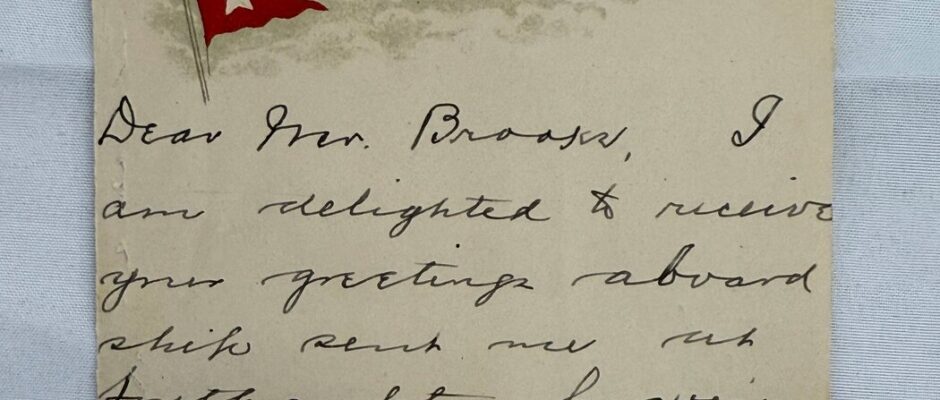 Dear Mr. Brooks, I
am delighted to receive
your greetings aboard
ship sent me at